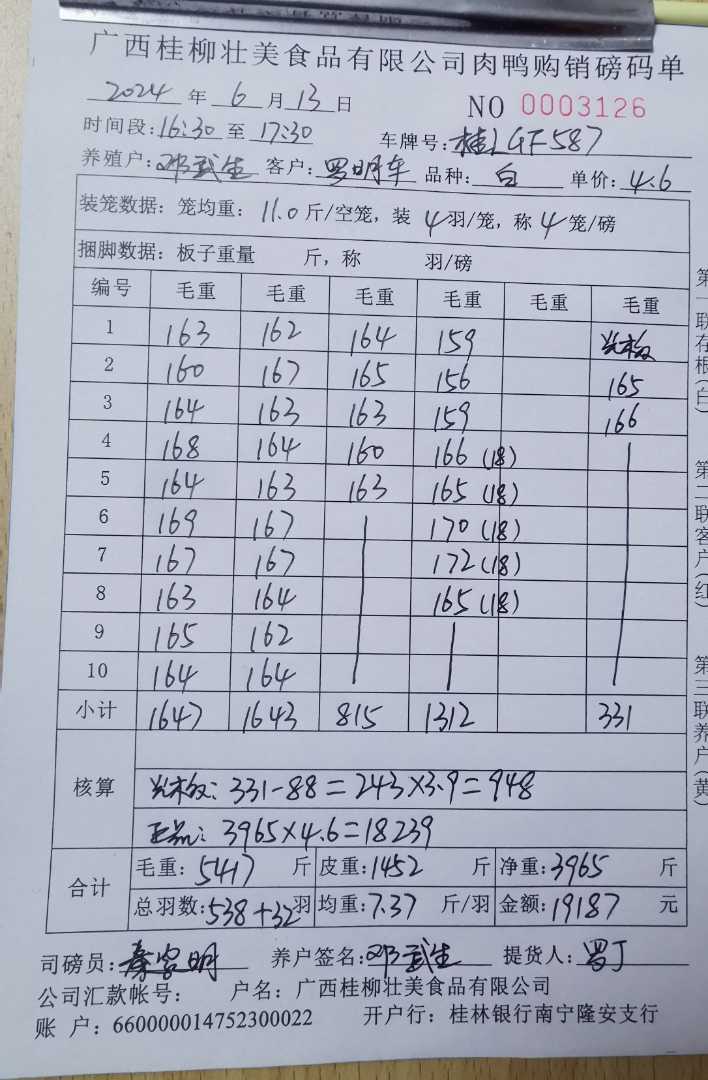 广西桂柳壮美食品有限公司肉鸭购销磅码单
2024 年 6 月 13 日 NO 0003126
时间段:16:30 至 17:30 车牌号:桂LGF587
养殖户:邓武生 客户:罗明车 品种:白 单价:4.6
装笼数据: 笼均重: 11.0 斤/空笼, 装 4 羽/笼, 称 4 笼/磅
捆脚数据: 板子重量 斤, 称 羽/磅
编号 毛重 毛重 毛重 毛重 毛重 毛重
1 163 162 164 159
2 160 167 165 156 165
3 164 163 163 159 166
4 168 164 160 166 (18)
5 164 163 163 165 (18)
6 169 167 170 (18)
7 167 167 172 (18)
8 163 164 165 (18)
9 165 162
10 164 164
小计 1647 1643 815 1312 331
核算
331-88=243×3.9=948
正品: 3965×4.6=18239
合计
毛重: 5417 斤 皮重: 1452 斤 净重: 3965 斤
总羽数: 538+32 羽 均重: 7.37 斤/羽 金额: 19187 元
司磅员: 明 养户签名: 邓武生 提货人: 罗丁
公司汇款帐号: 户名: 广西桂柳壮美食品有限公司
账 户: 660000014752300022 开户行: 桂林银行南宁隆安支行
第一联存根(白)
第二联客户(红)
第三联养户(黄)